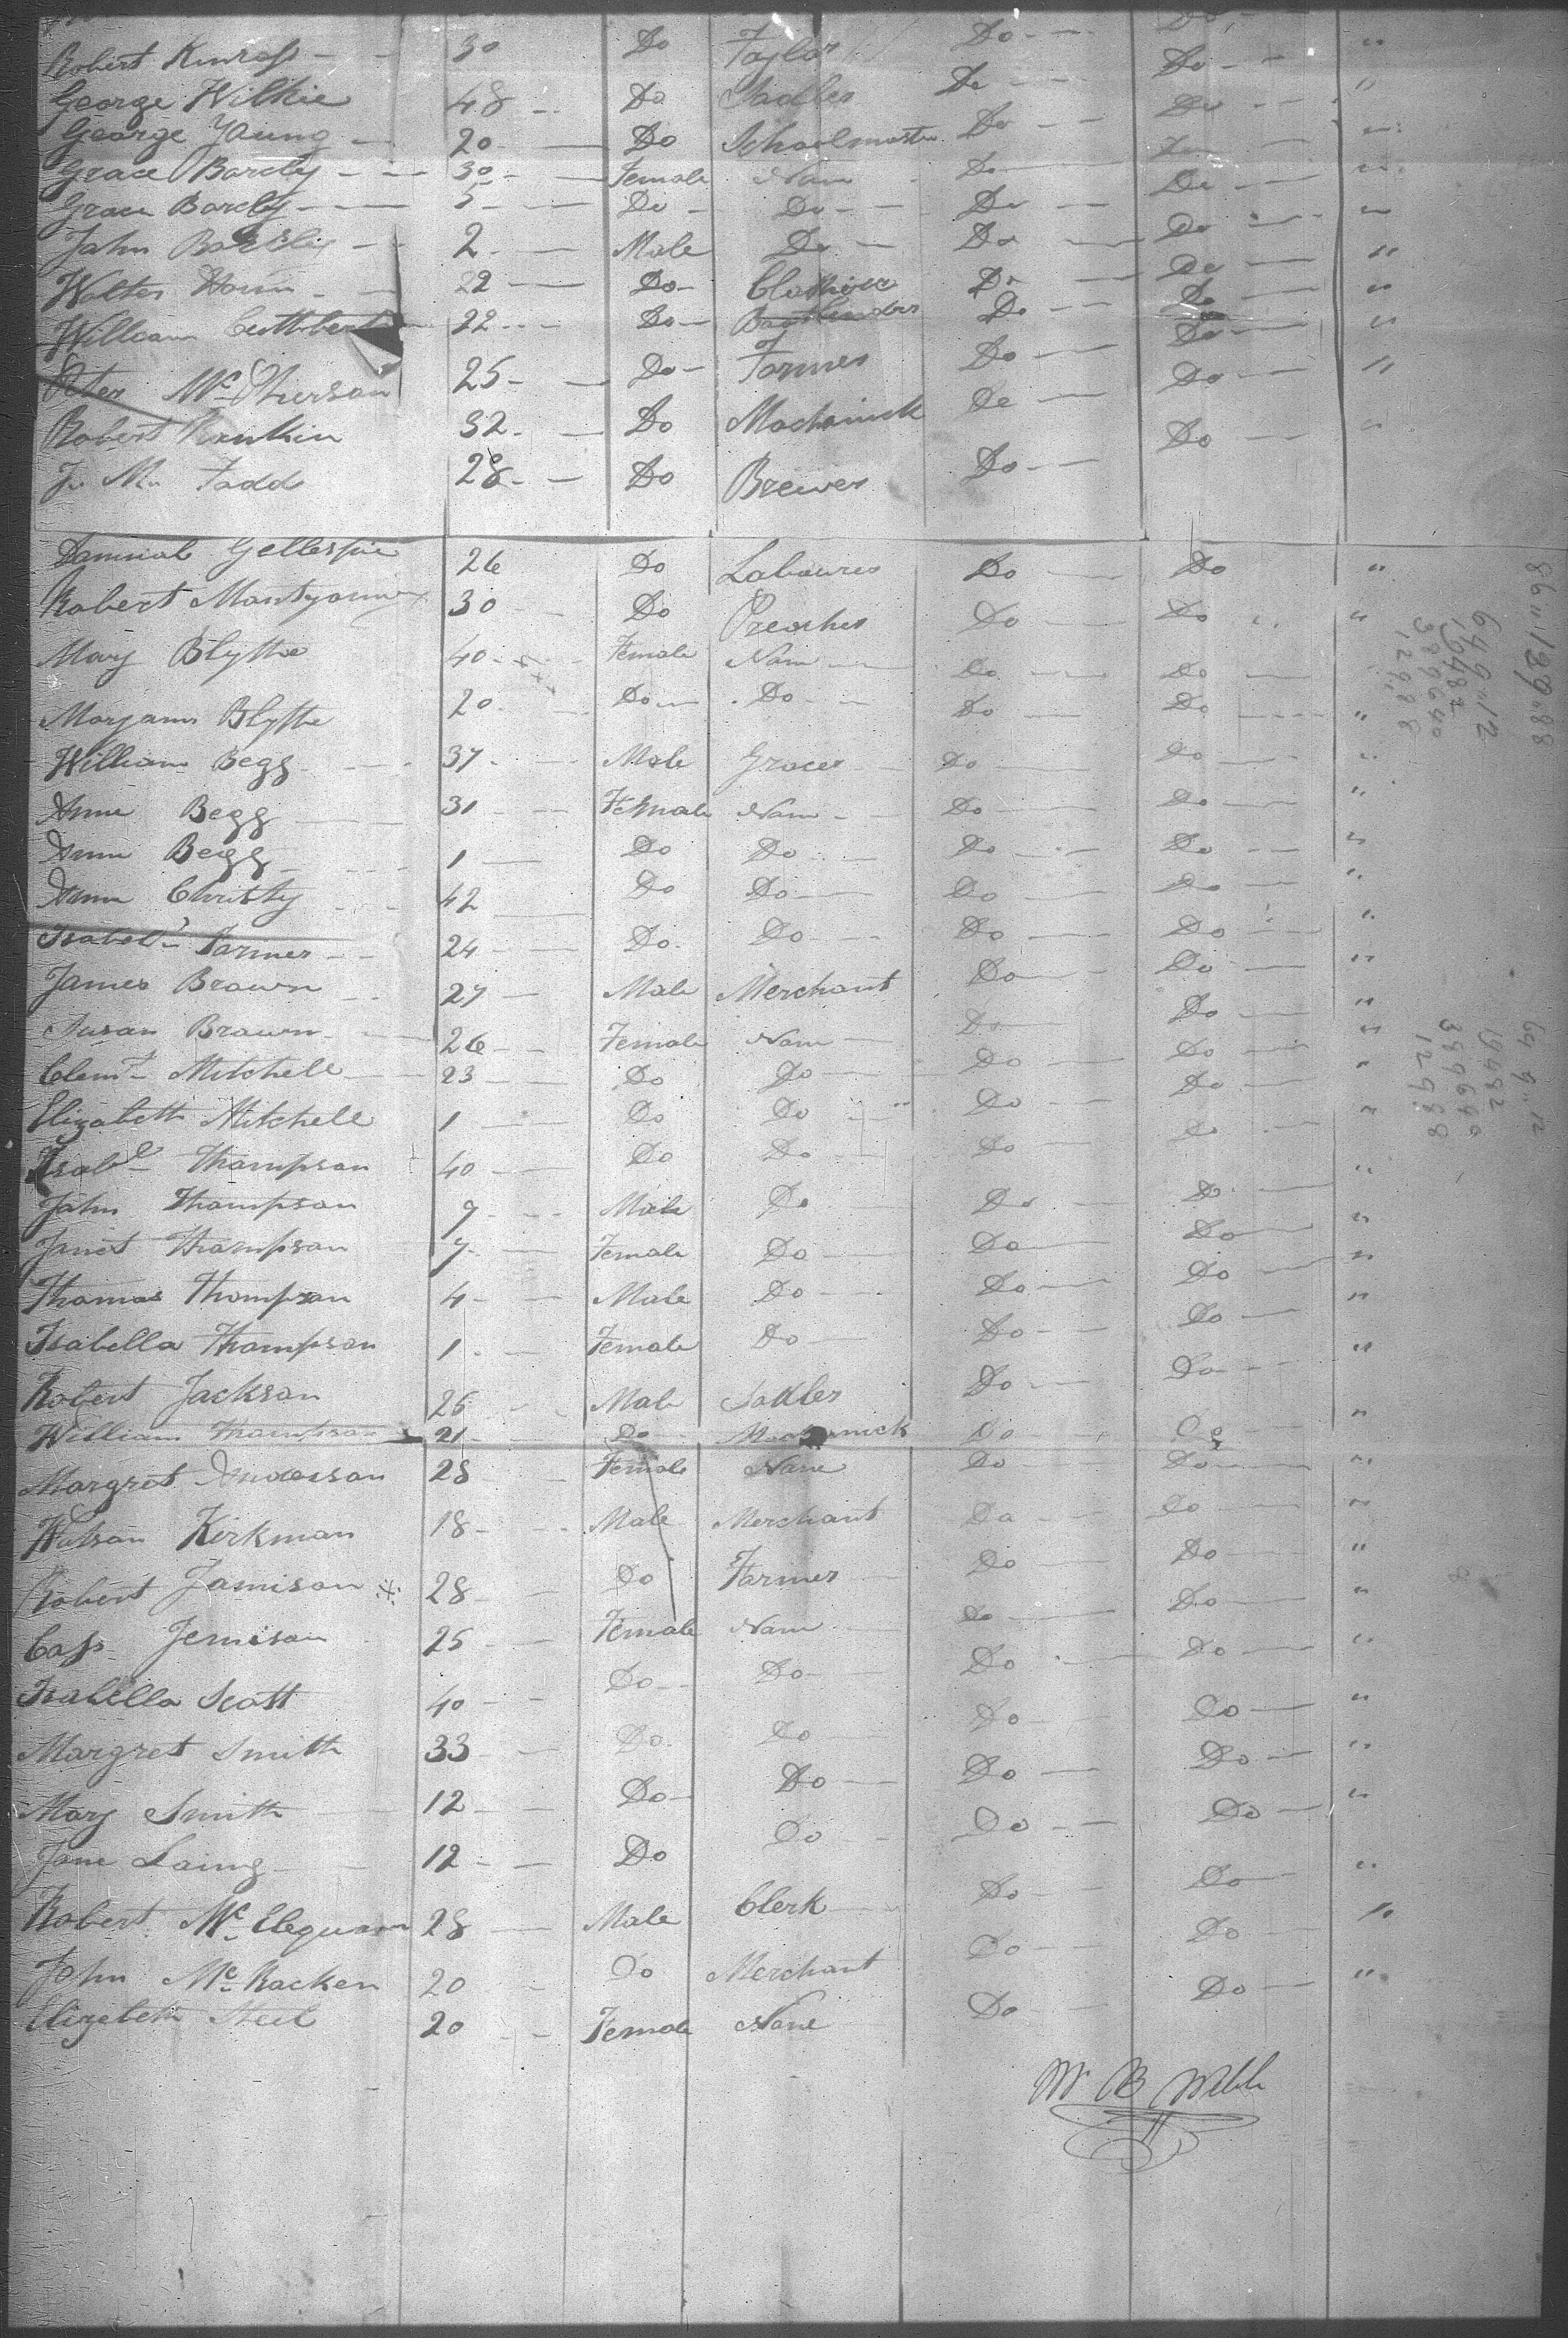 Do
Robert Kinross 30 Do Taylor Do Do "
George Wilkie 48 Do Sadler Do Do "
George Young 20 Do Schoolmaster Do Do "
Grace Barcly 30 Female Nan Do Do "
Grace Barcly 5 Do Do Do Do "
John Barcly 2 Male Do Do Do "
Walter 22 Do Do Do "
William Cuthbert 22 Do Do Do "
Peter Mc Pherson 25 Do Farmer Do Do "
Robert Rankin 32 Do Mechanick Do Do "
J. M. Tadd 28 Do Brewer Do
Gellespie 26 Do Labourer Do Do "
Robert Montgomery 30 Do Preacher Do Do "
Mary Blythe 40 Female Nan Do Do
Maryann Blythe 20 Do Do Do Do "
William Begg 37 Male Grocer Do Do "
Anne Begg 31 Female Nan Do Do "
Ann Begg 1 Do Do Do Do "
Ann Christy 42 Do Do Do Do "
Isabella Farmer 24 Do Do Do Do "
James Brown 27 Male Merchant Do Do "
Susan Brown 26 Female Nan Do Do "
Clemt Mitchell 23 Do Do Do Do "
Elizabeth Mitchell 1 Do Do Do Do "
Isabl Thompson 40 Do Do Do Do "
John Thompson 9 Male Do Do Do "
Janet Thompson 7 Female Do Do Do "
Thomas Thompson 4 Male Do Do Do "
Isabella Thompson 1 Female Do Do Do "
Robert Jackson 26 Male Sadler Do Do "
William Thompson 21 Do Mechanick Do Do "
Margret Anderson 28 Female Nane Do Do "
Watson Kirkman 18 Male Merchant Do Do "
Robert Jamison 28 Do Farmer Do Do "
Cass Jemison 25 Female Nan Do Do "
Isabella Scott 40 Do Do Do Do "
Margret Smith 33 Do Do Do Do "
Mary Smith 12 Do Do Do Do "
Jane Laing 12 Do Do Do Do "
Robert Mc 28 Male Clerk Do Do "
John Mc Kracken 20 Do Merchant Do Do "
Elizebeth Steel 20 Female Nane Do Do "
W B Webb